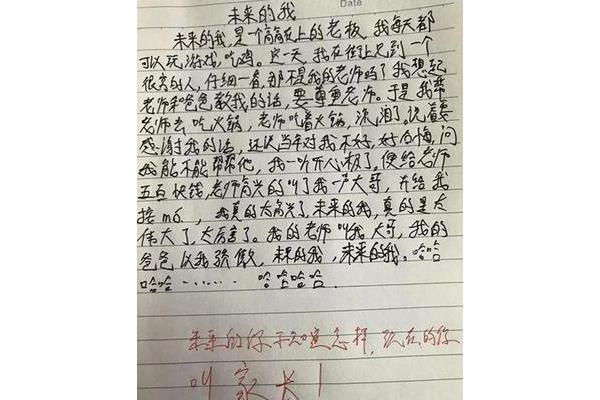 Date
未来的我
未来的我,是一个高高在上的老板,我每天都
可以玩游戏,吃鸡。这一天,我在街上见到一个
很穷的人,仔细一看,那不是我的老师吗?我想起
老师和爸爸教我的话,要尊重老师。于是我带
老师去吃火锅,老师吃着火锅,流泪了,说着要
感谢我的话,还说当年对我不好,好后悔,问
我能不能帮帮他,我一听开心极了,便给老师
五百块钱,老师高兴的叫了我一声大哥,并给我
接m6,我真的太高兴了,未来的我,真的是太
伟大了,太厉害了。我的老师叫我大哥,我的
爸爸以我骄傲,未来的我,未来的我。哈哈
哈哈……哈哈哈哈.
未来的你不知道怎样,现在的你
叫家长!